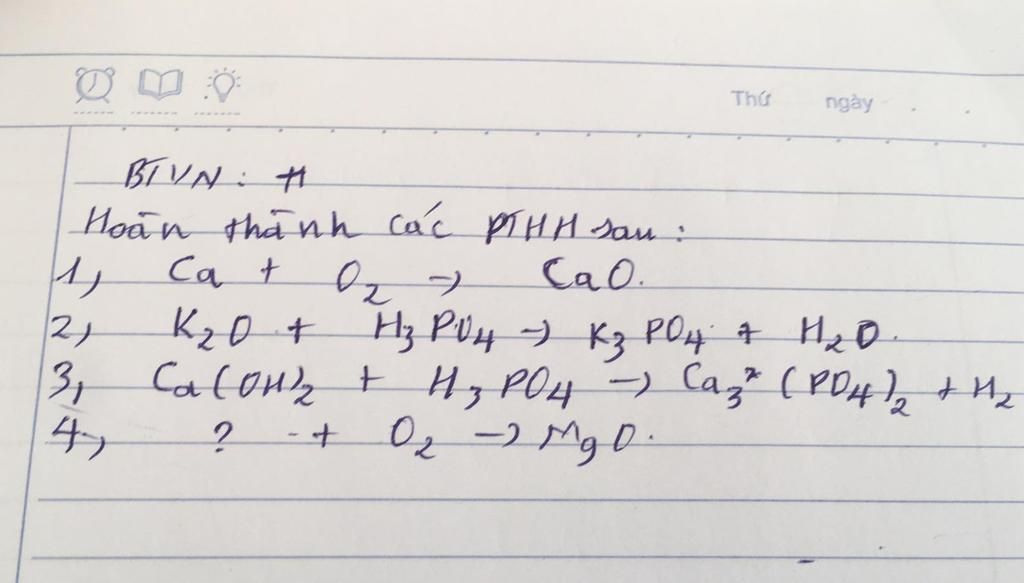 Thứ ngày . .
BTVN: H
Hoàn thành các PTHH sau:
1, Ca + O2 → CaO.
2, K2O + H3PO4 → K3PO4 + H2O.
3, Ca(OH)2 + H3PO4 → Ca3(PO4)2 + H2
4, ? + O2 → MgO.